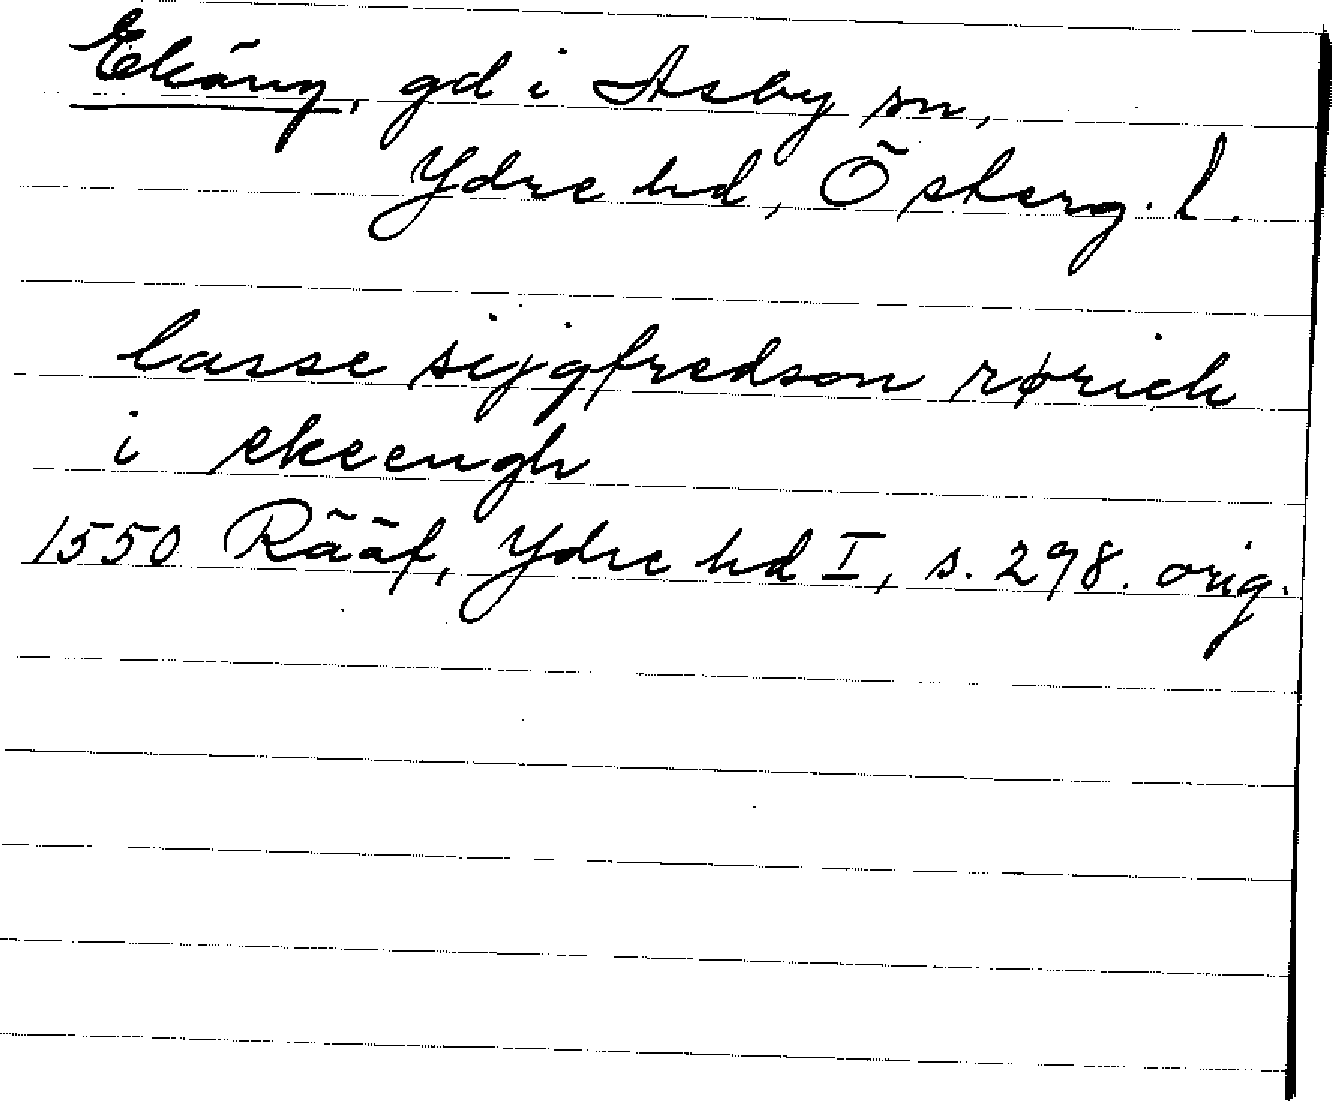 Ekäng, gd i Asby sn,
Ydre hd, Österg. l.
lasse sijgfredson rørick
i ekeengh
1550 Rääf, Ydre hd I, s. 298. orig.